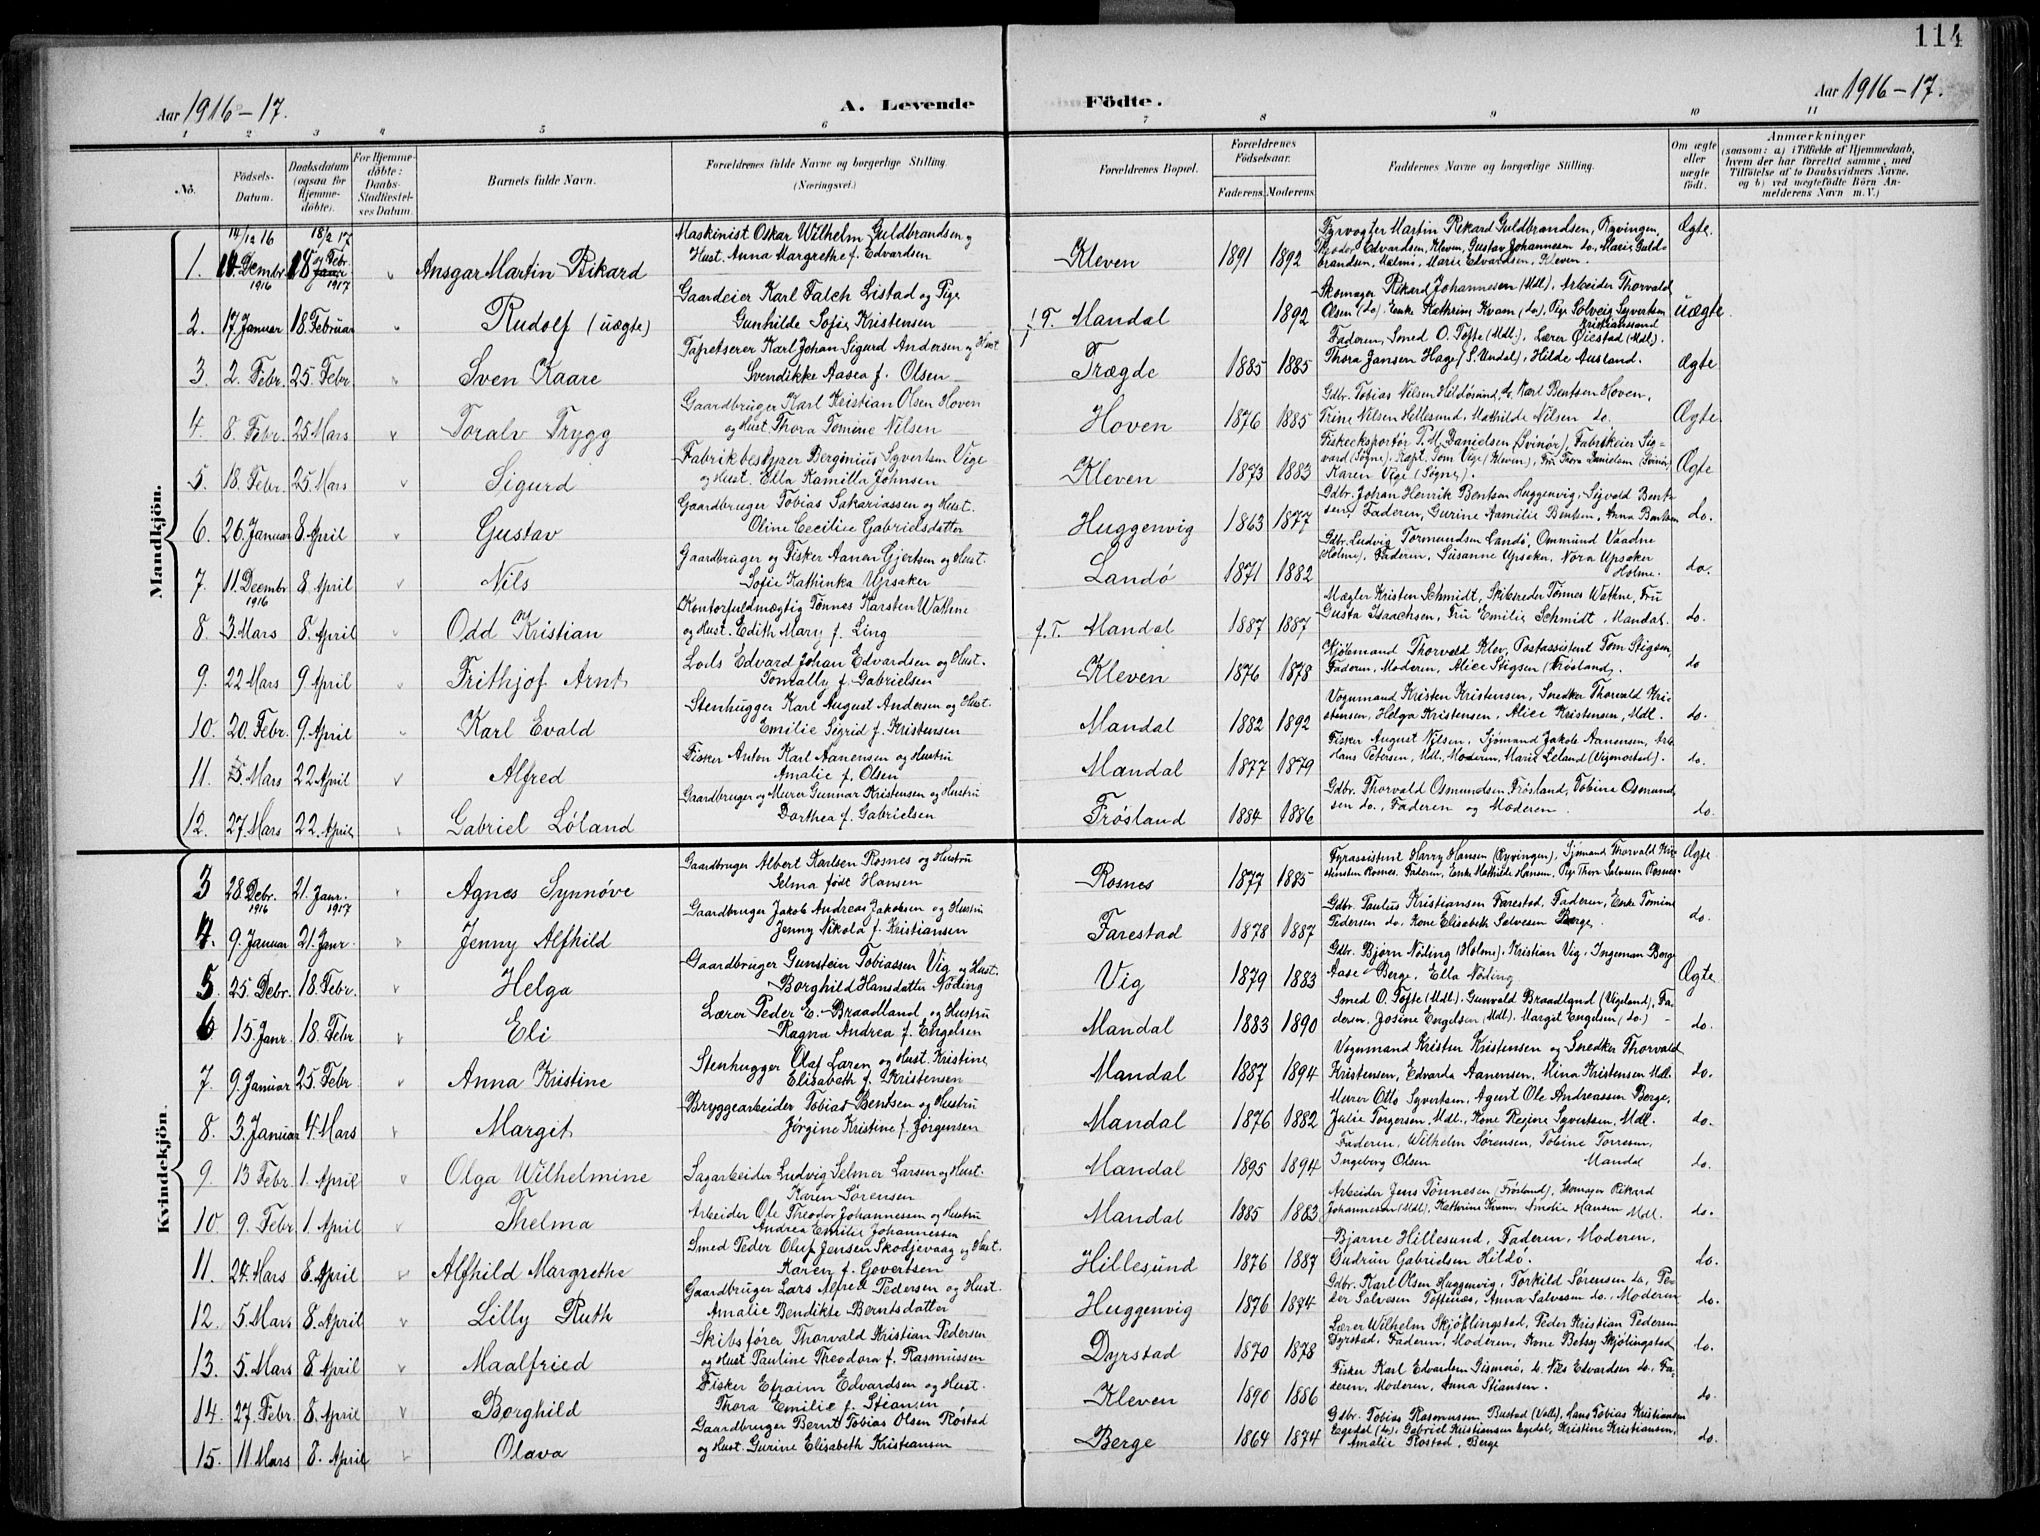 114
Aar 1916-17.
A. Levende Födte.
Aar 1916-17.
1 2 3 4 5 6 7 8 9 10 11
No.
Födsels-Datum.
Daabsdatum (ogsaa for Hjemmedöbte).
For Hjemmedöbte: Daabs-Stadfæstelses Datum.
Barnets fulde Navn.
Forældrenes fulde Navne og borgerlige Stilling. (Næringsvei.)
Forældrenes Bopæl.
Forældrenes Födselsaar.
Faderens. Moderens.
Faddernes Navne og borgerlige Stilling.
Om ægte eller uægte födt.
Anmærkninger
(saasom: a.) i Tilfælde af Hjemmedaab, hvem der har forrettet samme, med Tilföielse af to Daabsvidners Navne, og b) ved uægtefödte Börn Anmelderens Navn m. V.)
Mandkjön.
14/12 16 18/2 17
1. 14 Dembr 1916 18 Febr. 1917 Ansgar Martin Rikard Maskinist Oskar Wilhelm Guldbrandsen og Hust. Anna Margrethe f. Edvardsen Kleven 1891 1892 Fyrvogter Martin Rikard Guldbrandsen, Ryvingen, Edvardsen, Kleven, Gustav Johannesen do, Marie Guldbrandsen, Malmö, Marie Edvardsen, Kleven. Ægte.
2. 17. Januar 18. Februar Rudolf (uægte) Gaardeier Karl Falch Listad og Pige Gunhilde Sofie Kristensen f. T. Mandal 1892 Skomager Rikard Johannesen (Mdl), Arbeider Thorvald Olsen (do). Enke Kathrine Kvam (do), Pige Solveig Syvertsen Kristianssand uægte
3. 2. Febr. 25. Febr. Sven Kaare Tapetserer Karl Johan Sigurd Andersen og Hust Svendikke Aasea f. Olsen Trægde 1885 1885 Faderen, Smed O. Tofte (Mdl.), Lærer Øiestad (Mdl). Thora Jansen Hage (S. Undal), Hilde Ausland. Ægte
4. 8. Febr. 25. Mars Toralv Trygg Gaardbruger Karl Kristian Olsen Hoven og Hust. Thora Tomine Nilsen Hoven 1876 1885 Gdbr. Tobias Nilsen Hildøsund, do. Karl Bentsen Hoven, Trine Nilsen Hillesund, Mathilde Nilsen do. Ægte.
5. 18. Febr. 25. Mars Sigurd Fabrikbestyrer Berginius Syvertsen Vige og Hust. Ella Kamilla Johnsen Kleven 1873 1883 Fiskeeksportør T. M. Danielsen (Svinør), Fabrikeier Sigvard (Søgne), Kapt. Tom Vige (Kleven), Fru Thora Danielsen (Svinør) Karen Vige (Søgne). Ægte
6. 26. Januar 8. April Gustav Gaardbruger Tobias Sakariassen og Hust. Oline Cecilie Gabrielsdatter Huggenvig 1863 1877 Gdbr. Johan Henrik Bentsen Huggenvig, Sigvald Bentsen, Faderen, Gurine Aamilie Bentsen, Anna Bentsen do.
7. 11. Decembr 1916 8. April Nils Gaardbruger og Fisker Aanen Gjertsen og Hust. Sofie Kathinka Upsaker Landø 1871 1882 Gdbr. Ludvig Tormundsen Landø, Ommund Vaadne (Holme), Faderen, Susanne Upsaker, Nora Upsaker Holme. do.
8. 3. Mars 8. April Odd Kristian Kontorfuldmægtig Tønnes Karsten Wathne og Hust. Edith Mary f. Ling f. T. Mandal 1887 1887 Mægler Kristen Schmidt, Skibsreder Tønnes Wathne, Fru Gusta Isaachsen, Fru Emilie Schmidt, Mandal. do.
9. 22 Mars 9. April Frithjof Arnt Lods Edvard Johan Edvardsen og Hust. Tomally f. Gabrielsen Kleven 1876 1878 Kjøbmand Thorvald Klev, Postassistent Tom Stigsen, Faderen, Moderen, Alice Stigsen (Frøsland). do
10. 20. Febr. 9. April Karl Evald Stenhugger Karl August Andersen og Hust. Emilie Sigrid f. Kristensen Mandal 1882 1892 Vognmand Kristen Kristensen, Snedker Thorvald Kristensen, Helga Kristensen, Alice Kristensen, Mdl. do.
11. 5. Mars 22 April Alfred Fisker Anton Karl Aanensen og Hustru Amalie f. Olsen Mandal 1877 1879 Fisker August Nilsen, Sjømand Jakob Aanensen, Arb. Hans Petersen, Mdl, Moderen, Marie Leland (Vigmostad). do.
12. 27. Mars 22 April Gabriel Løland Gaardbruger og Murer Gunnar Kristensen og Hustru Dorthea f. Gabrielsen Frøsland 1884 1886 Gdbr. Thorvald Osmundsen Frøsland, Tobina Osmundsen do., Faderen og Moderen. do.
Kvindekjön.
3 28. Debr. 1916 21. Janr. 1917 Agnes Synnøve Gaardbruger Albert Karlsen Rosnes og Hustru Selma født Hansen Rosnes 1877 1885 Fyrassistent Harry Hansen (Ryvingen), Sjømand Thorvald Rosnes. Faderen, Enke Mathilde Hansen, Pige Thora Salvesen Rosnes. Ægte
4. 9. Januar 21. Janr. Jenny Alfhild Gaardbruger Jakob Andreas Jakobsen og Hustru Jenny Nikola f. Kristiansen Farestad 1878 1887 Gdbr. Paulus Kristiansen Farestad, Faderen, Enke Tomine Pedersen do. Kone Elisabeth Salvesen Berge. do.
5. 25. Debr. 18. Febr. Helga Gaardbruger Gunstein Tobiassen Vig og Hust. Borghild Hansdatter Nøding Vig 1879 1883 Gdbr. Bjørn Nøding (Holme), Kristian Vig, Ingeman Berge Aase Berge, Ella Nøding Ægte
6 15. Janr. 18. Febr Eli Lærer Peder E. Braadland og Hustru Ragna Andrea f. Engelsen Mandal 1883 1890 Smed O. Tofte (Mdl). Gunvald Braadland (Vigeland), Faderen, Josine Engelsen (Mdl). Margit Engelsen (do.) do.
7. 9. Januar 25. Febr Anna Kristine Stenhugger Olaf Laren og Hust. Kristine Elisabeth f. Kristensen Mandal 1887 1894 Vognmand Kristen Kristensen og Snedker Thorvald Kristensen, Edvarda Aanensen, Mina Kristensen Mdl. do.
8. 3. Januar 4. Mars Margit Bryggearbeider Tobias Bentsen og Hustru Jørgine Kristine f. Jørgensen Mandal 1876 1882 Murer Otto Syvertsen, Agent Ole Andreassen Berge, Julie Torgersen, Mdl., Kone Regine Syvertsen, Mdl. do.
9. 13 Febr. 1. April Olga Wilhelmine Sagarbeider Ludvig Selmer Larsen og Hust. Karen Sørensen Mandal 1895 1894 Faderen, Wilhelm Sørensen, Tobine Torresen, Ingeborg Olsen Mandal do.
10 9. Febr 1. April Thelma Arbeider Ole Theodor Johannessen og Hustru Andrea Emilie Johannessen Mandal 1885 1883 Arbeider Jens Tønnesen (Frøsland), Skomager Rikard Johannessen (Mdl), Kathrine Kvam, Amalie Hansen Mdl. do.
11. 24. Mars 6. April Alfhild Margrethe Smed Peder Oluf Jensen Skodjevaag og Hust. Karen f. Govertsen Hillesund 1876 1887 Bjarne Hillesund, Faderen, Moderen, Gudrun Gabrielsen Hildø. do.
12. 5. Mars 8. April Lilly Ruth Gaardbruger Lars Alfred Pedersen og Hust. Amalie Bendikte Berntsdatter Huggenvig 1876 1874 Gdbr. Karl Olsen Huggenvig, Torkild Sørensen do, Peder Salvesen Toftenæs, Anna Salvesen do. Moderen do.
13. 5. Mars 8. April Maalfried Skibsfører Thorvald Kristian Pedersen og Hust Pauline Theodora f. Rasmussen Dyrstad 1870 1878 Lærer Wilhelm Skjøllingstad, Peder Kristian Pedersen Dyrstad, Faderen, Moderen, Kone Betsy Skjølingstad do.
14. 27. Febr. 8. April Borghild Fisker Efraim Edvardsen og Hust. Thora Emilie f. Stiansen Kleven 1890 1886 Fisker Karl Edvardsen Gismerø, do. Nils Edvardsen do, Faderen, Moderen, Anna Stiansen. do.
15. 11 Mars 8. April Olava Gaardbruger Bernt Tobias Olsen Røstad og Hust. Gurine Elisabeth Kristiansen Berge 1864 1874 Gdbr. Tobias Rasmussen Bustad (Valle), Hans Tobias Kristiansen Egedal (do), Gabriel Kristiansen Egedal, Kristine Kristiansen, Amalie Rostad, Berge do.